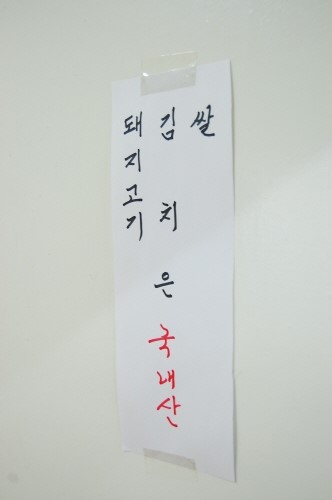 쌀
김치은 국내산
돼지고기